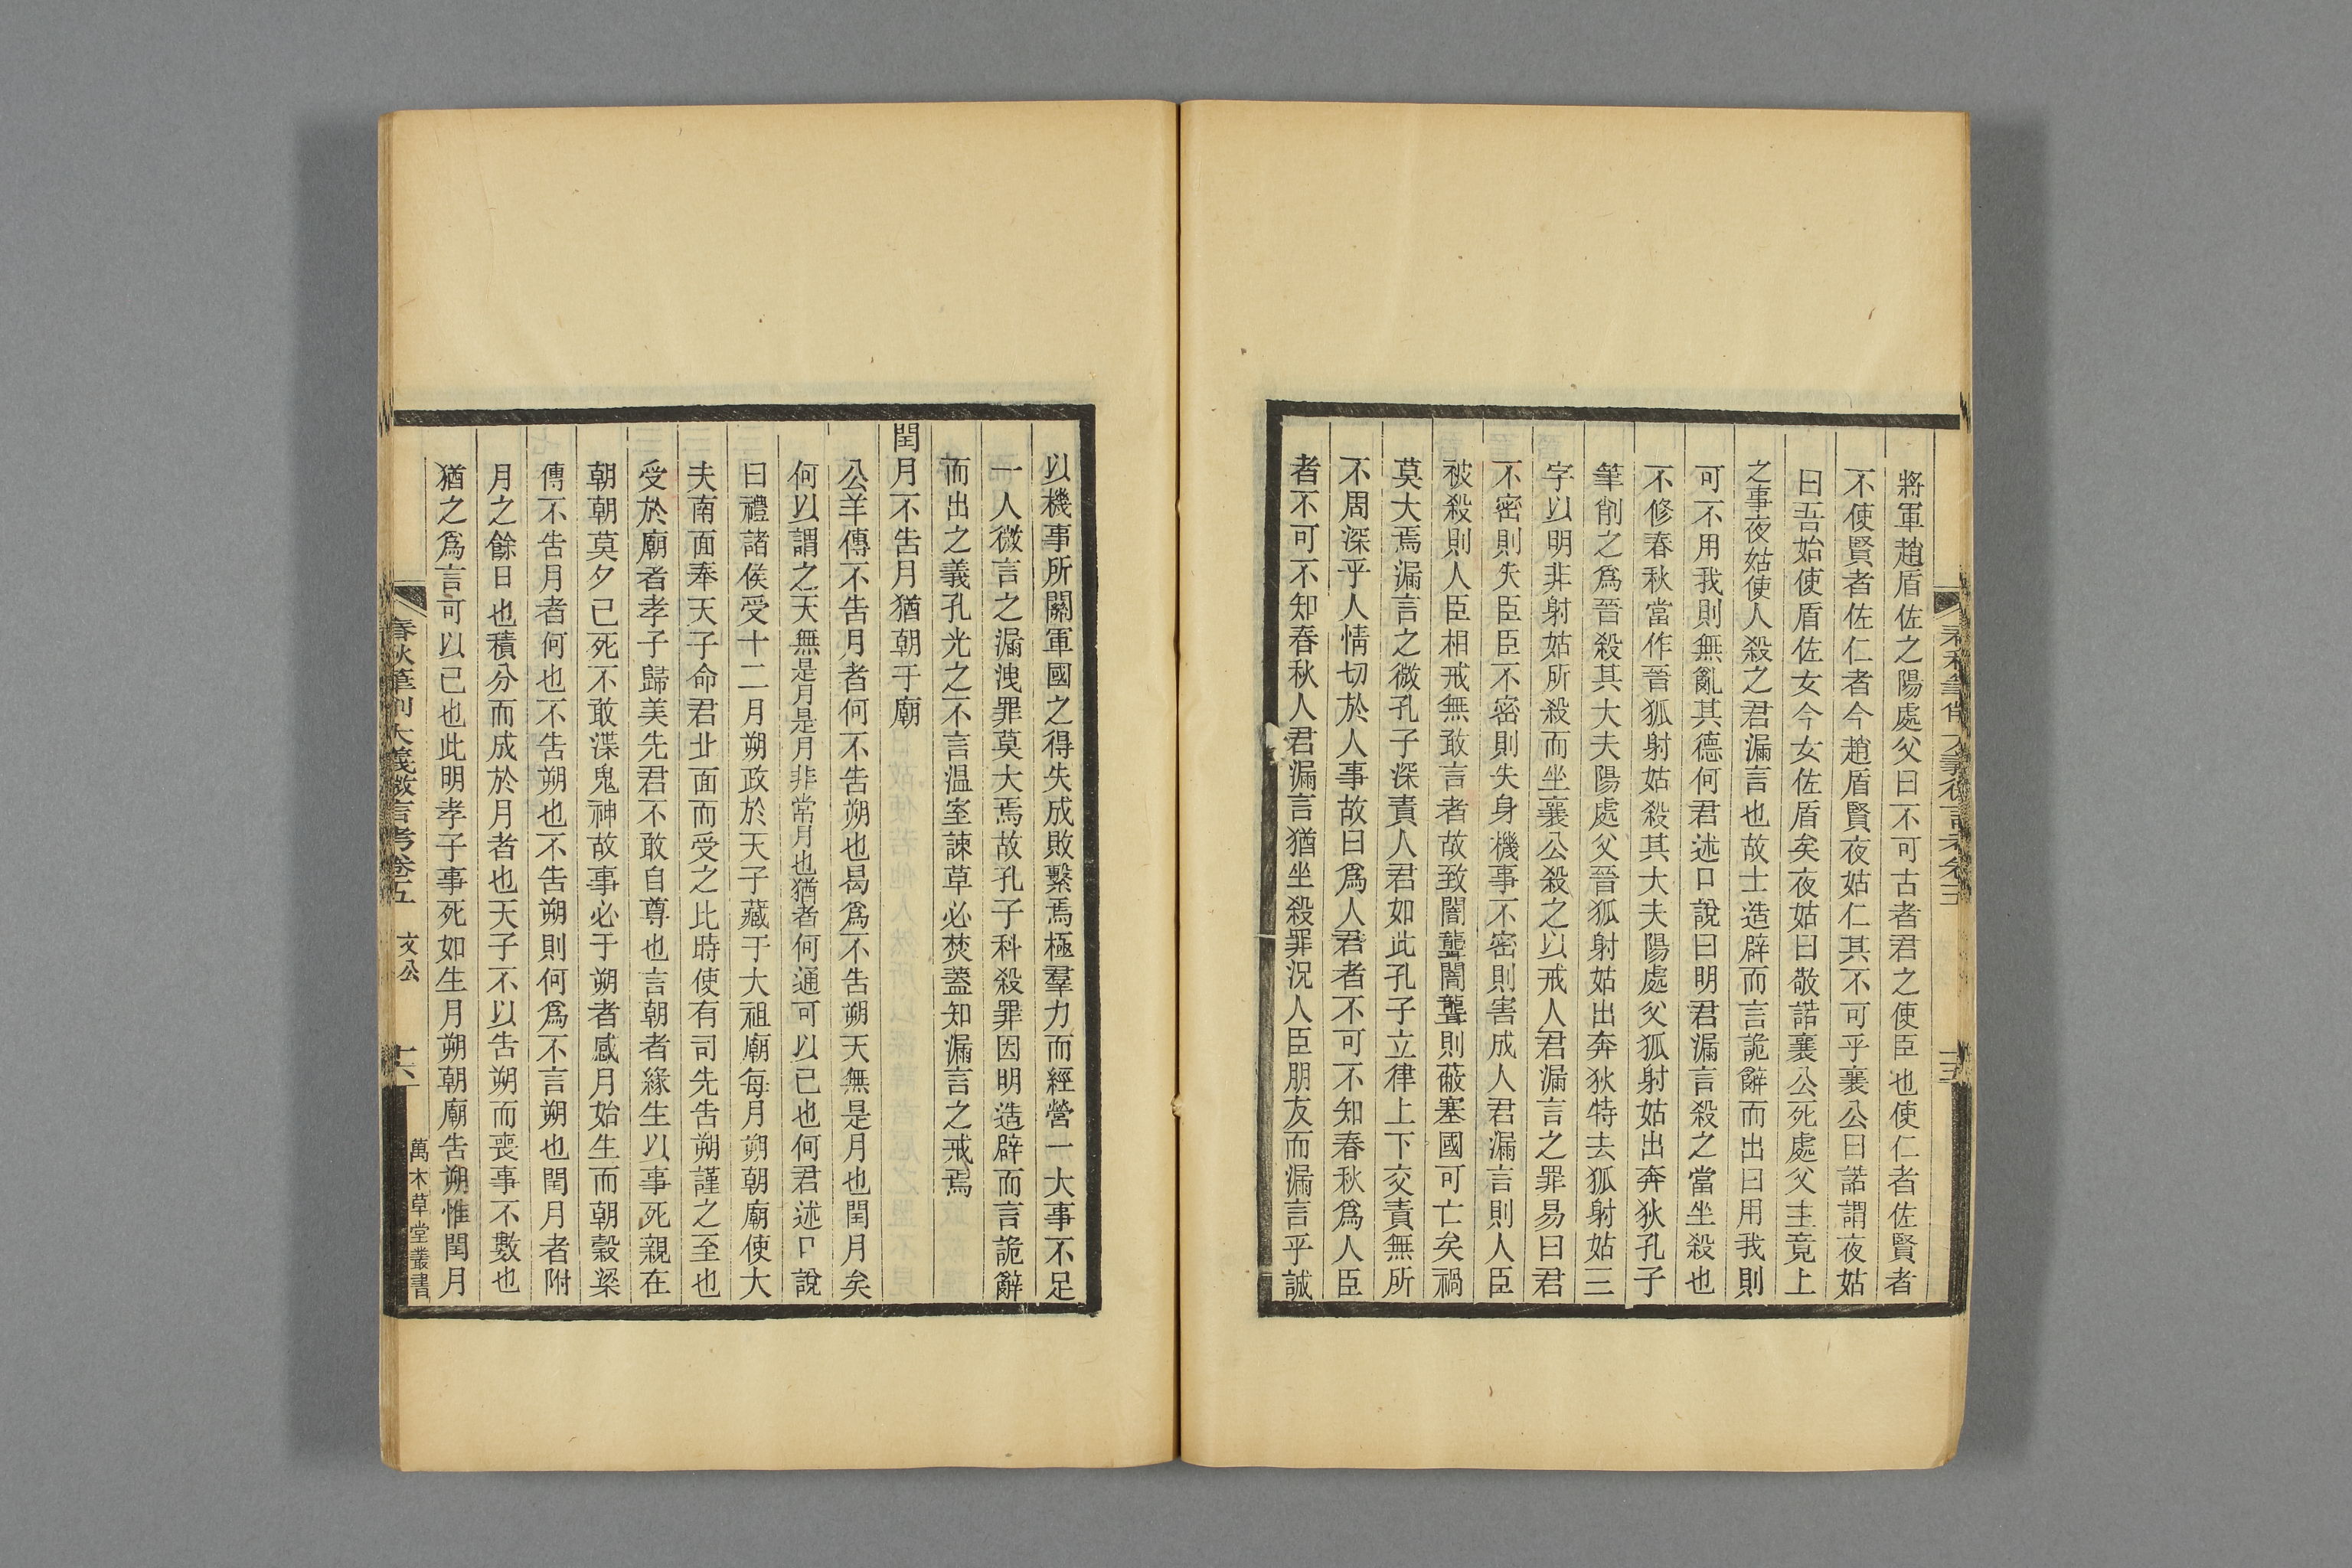 將軍趙盾佐之陽處父曰不可古者君之使臣也使仁者佐賢者
不使賢者佐仁者今趙盾賢夜姑仁其不可乎襄公曰諾謂夜姑
曰吾始使盾佐女今女佐盾矣夜姑曰敬諾襄公死處父主竟上
之事夜姑使人殺之君漏言也故士造辟而言詭辭而出曰用我則
可不用我則無亂其德何君述口說曰明君漏言殺之當坐殺也
不修春秋當作晉狐射姑殺其大夫陽處父狐射姑出奔狄孔子
筆削之爲晉殺其大夫陽處父晉狐射姑出奔狄特去狐射姑三
字以明非射姑所殺而坐襄公殺之以戒人君漏言之罪易曰君
不密則失臣臣不密則失身機事不密則害成人君漏言則人臣
被殺則人臣相戒無敢言者故致闇聾闇聾則蔽塞國可亡矣禍
莫大焉漏言之微孔子深責人君如此孔子立律上下交責無所
不周深乎人情切於人事故曰爲人君者不可不知春秋爲人臣
者不可不知春秋人君漏言猶坐殺罪況人臣朋友而漏言乎誠
以機事所關軍國之得失成敗繫焉極羣力而經營一大事不足
一人微言之漏洩罪莫大焉故孔子科殺罪因明造辟而言詭辭
而出之義孔光之不言温室諫草必焚蓋知漏言之戒焉
閏月不告月猶朝于廟
公羊傳不告月者何不告朔也曷爲不告朔天無是月也閏月矣
何以謂之天無是月是月非常月也猶者何通可以已也何君述口說
曰禮諸侯受十二月朔政於天子藏于大祖廟每月朔朝廟使大
夫南面奉天子命君北面而受之比時使有司先告朔謹之至也
受於廟者孝子歸美先君不敢自尊也言朝者緣生以事死親在
朝朝莫夕已死不敢渫鬼神故事必于朔者感月始生而朝穀梁
傳不告月者何也不告朔也不告朔則何爲不言朔也閏月者附
月之餘日也積分而成於月者也天子不以告朔而喪事不數也
猶之爲言可以已也此明孝子事死如生月朔朝廟告朔惟閏月
春秋筆削大義微言考卷五 文公 十六 萬木草堂叢書